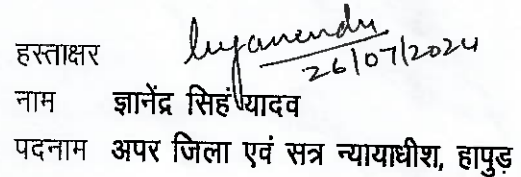 हस्ताक्षर 26/07/2024
नाम ज्ञानेंद्र सिहं यादव
पदनाम अपर जिला एवं सत्र न्यायाधीश, हापुड़